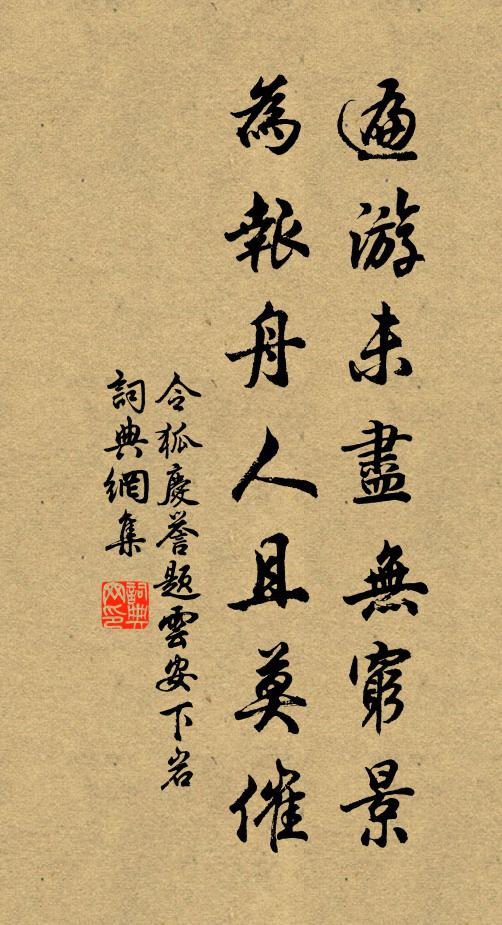 遍游未盡無窮景
為報舟人且莫催
令狐慶譽題雲安下岩
詞典網集
詞典
网印